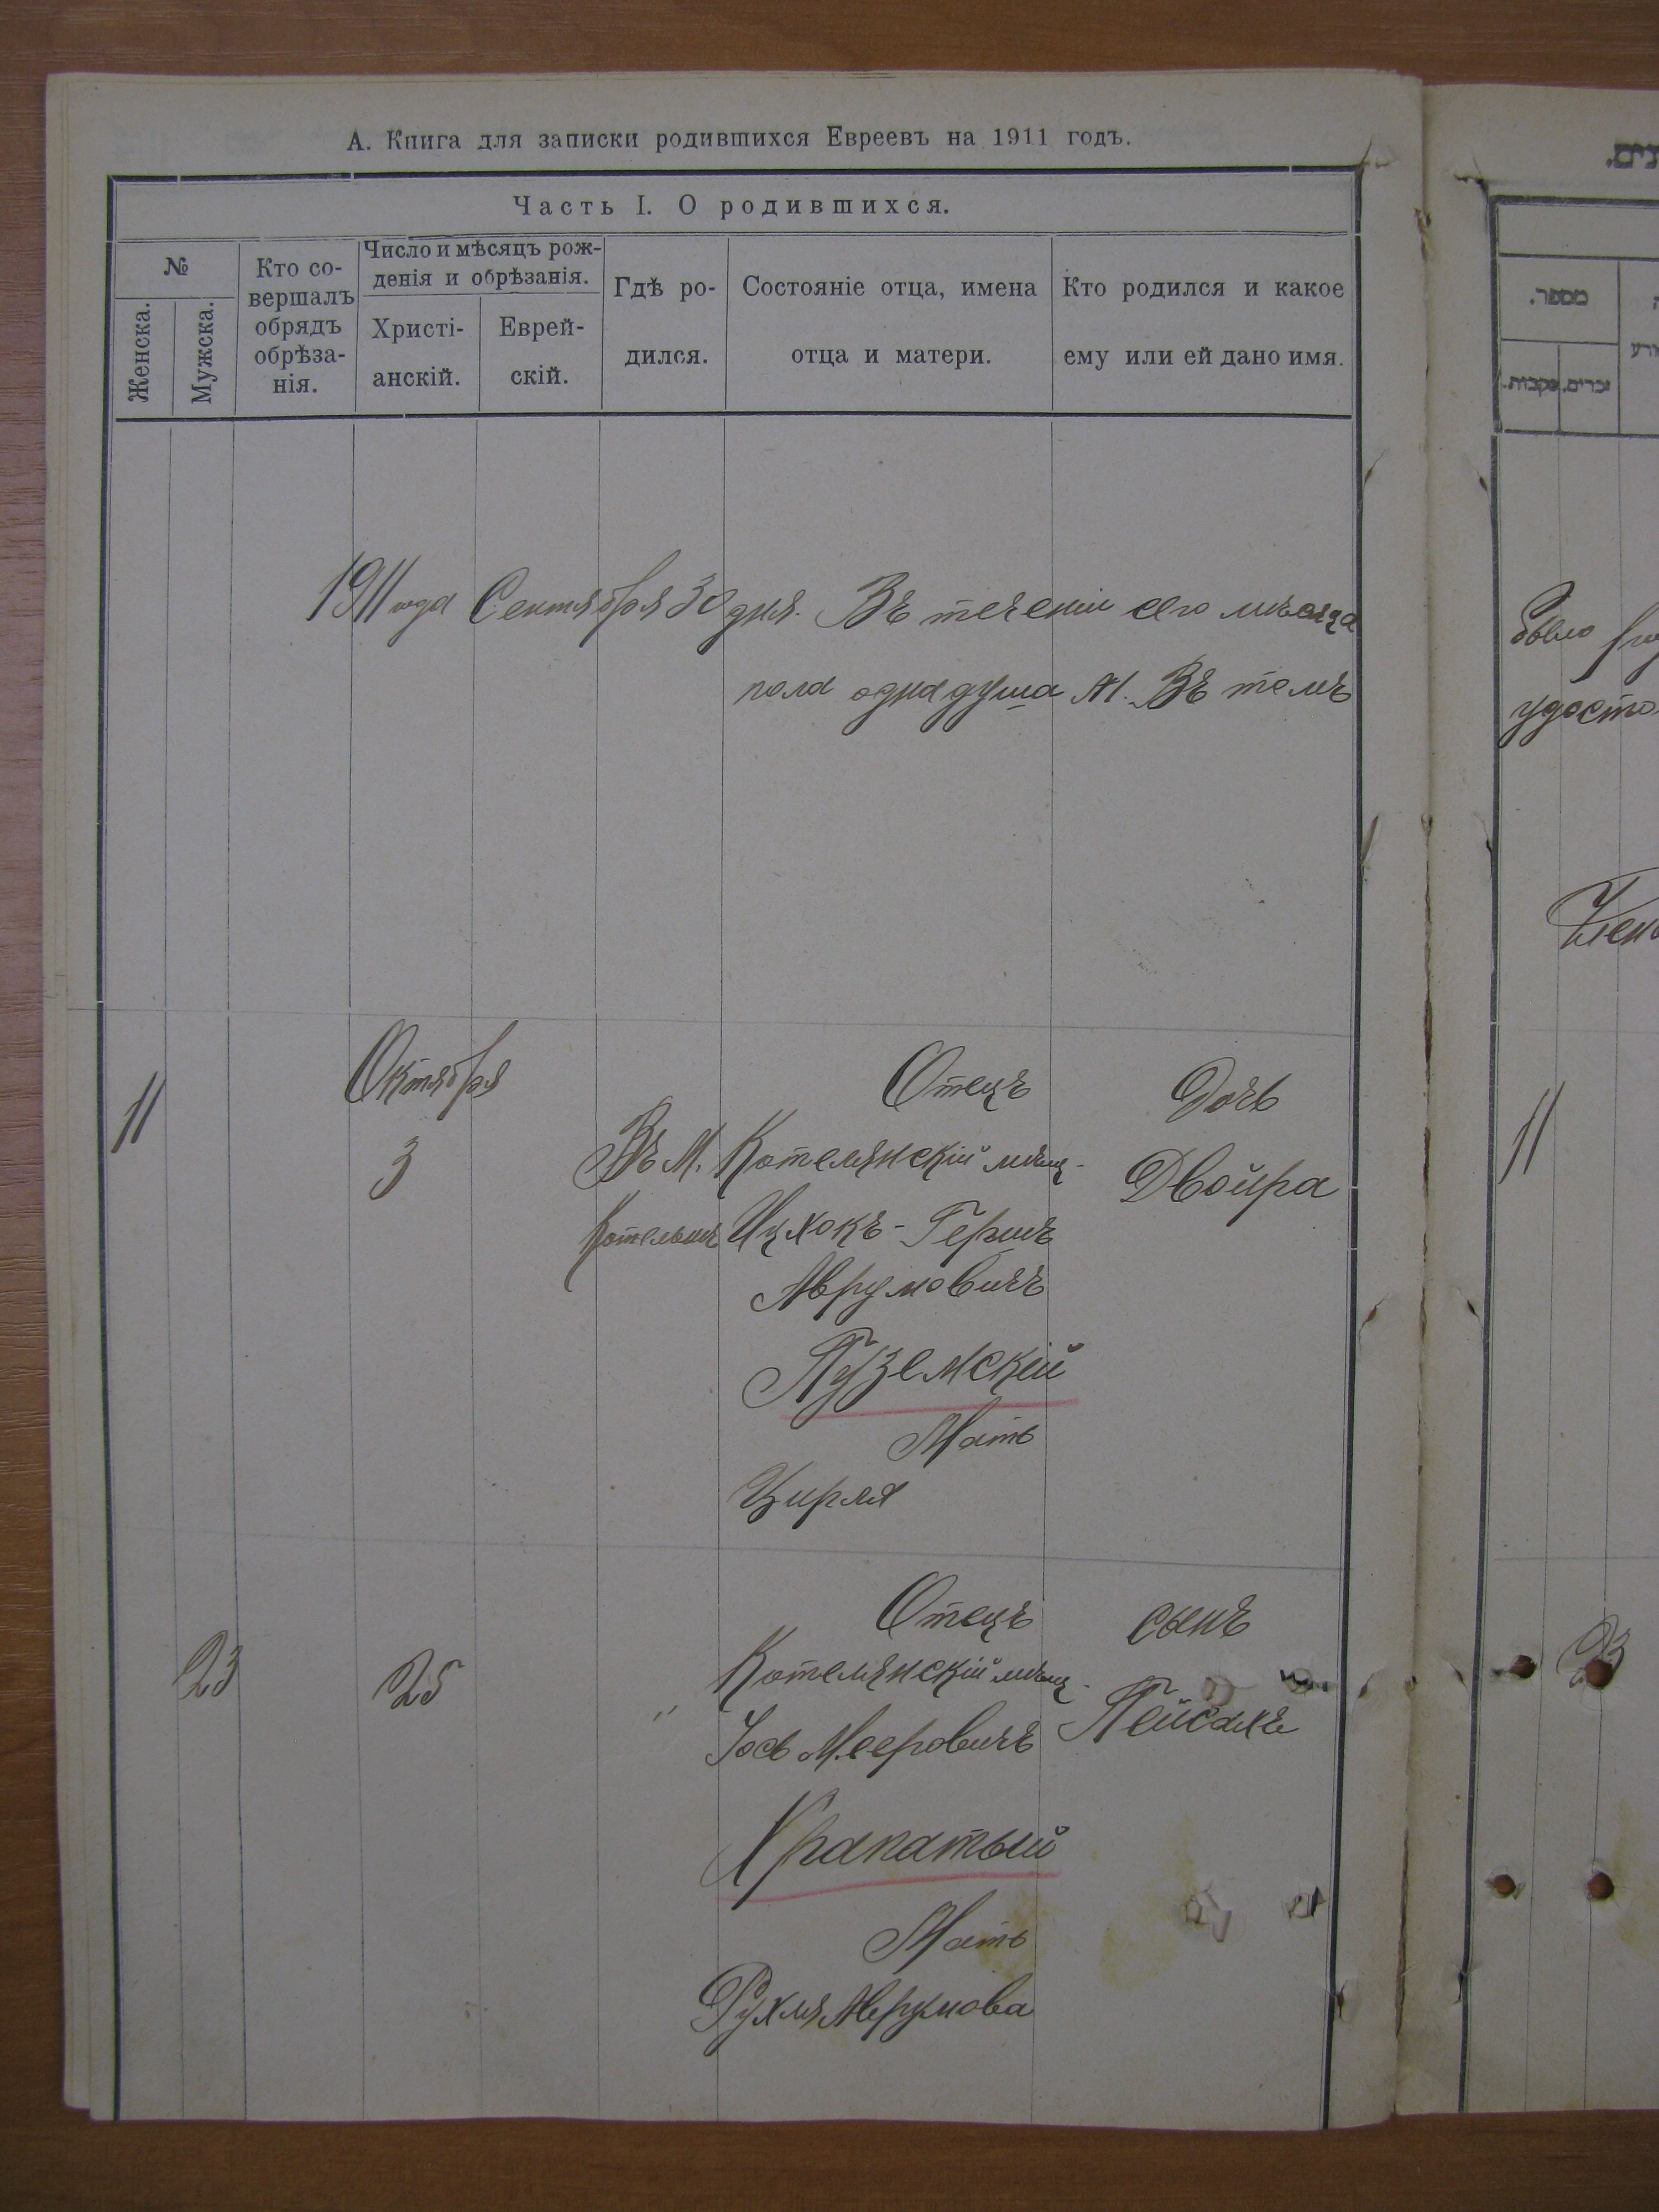 А. Книга для записки родившихся Евреевъ на 1911 годъ.
Часть I. О родившихся.
№
Женска.
Мужска.
Кто со-
вершалъ
обрядъ
обрѣза-
нія.
Число и мѣсяцъ рож-
денія и обрѣзанія.
Христі-
анскій.
Еврей-
скій.
Гдѣ ро-
дился.
Состояніе отца, имена
отца и матери.
Кто родился и какое
ему или ей дано имя.
1911 года Сентября 30 дня. Въ теченіи сего мѣсяца
пола одна душа М. Въ томъ
11
Октября
3
Въ М.
Отецъ
Котелянскій мѣщ.
Ицхокъ-Гершъ
Аврумовичъ
Пуземскій
Мать
Цирля
Дочь
Двойра
23
25
"
Отецъ
Котелянскій мѣщ.
Іось Мееровичъ
Храпатый
Мать
Рухля Аврумова
сынъ
Пейсахъ
מספר.
זכרים.
נקבות.
было
удосто
11
23